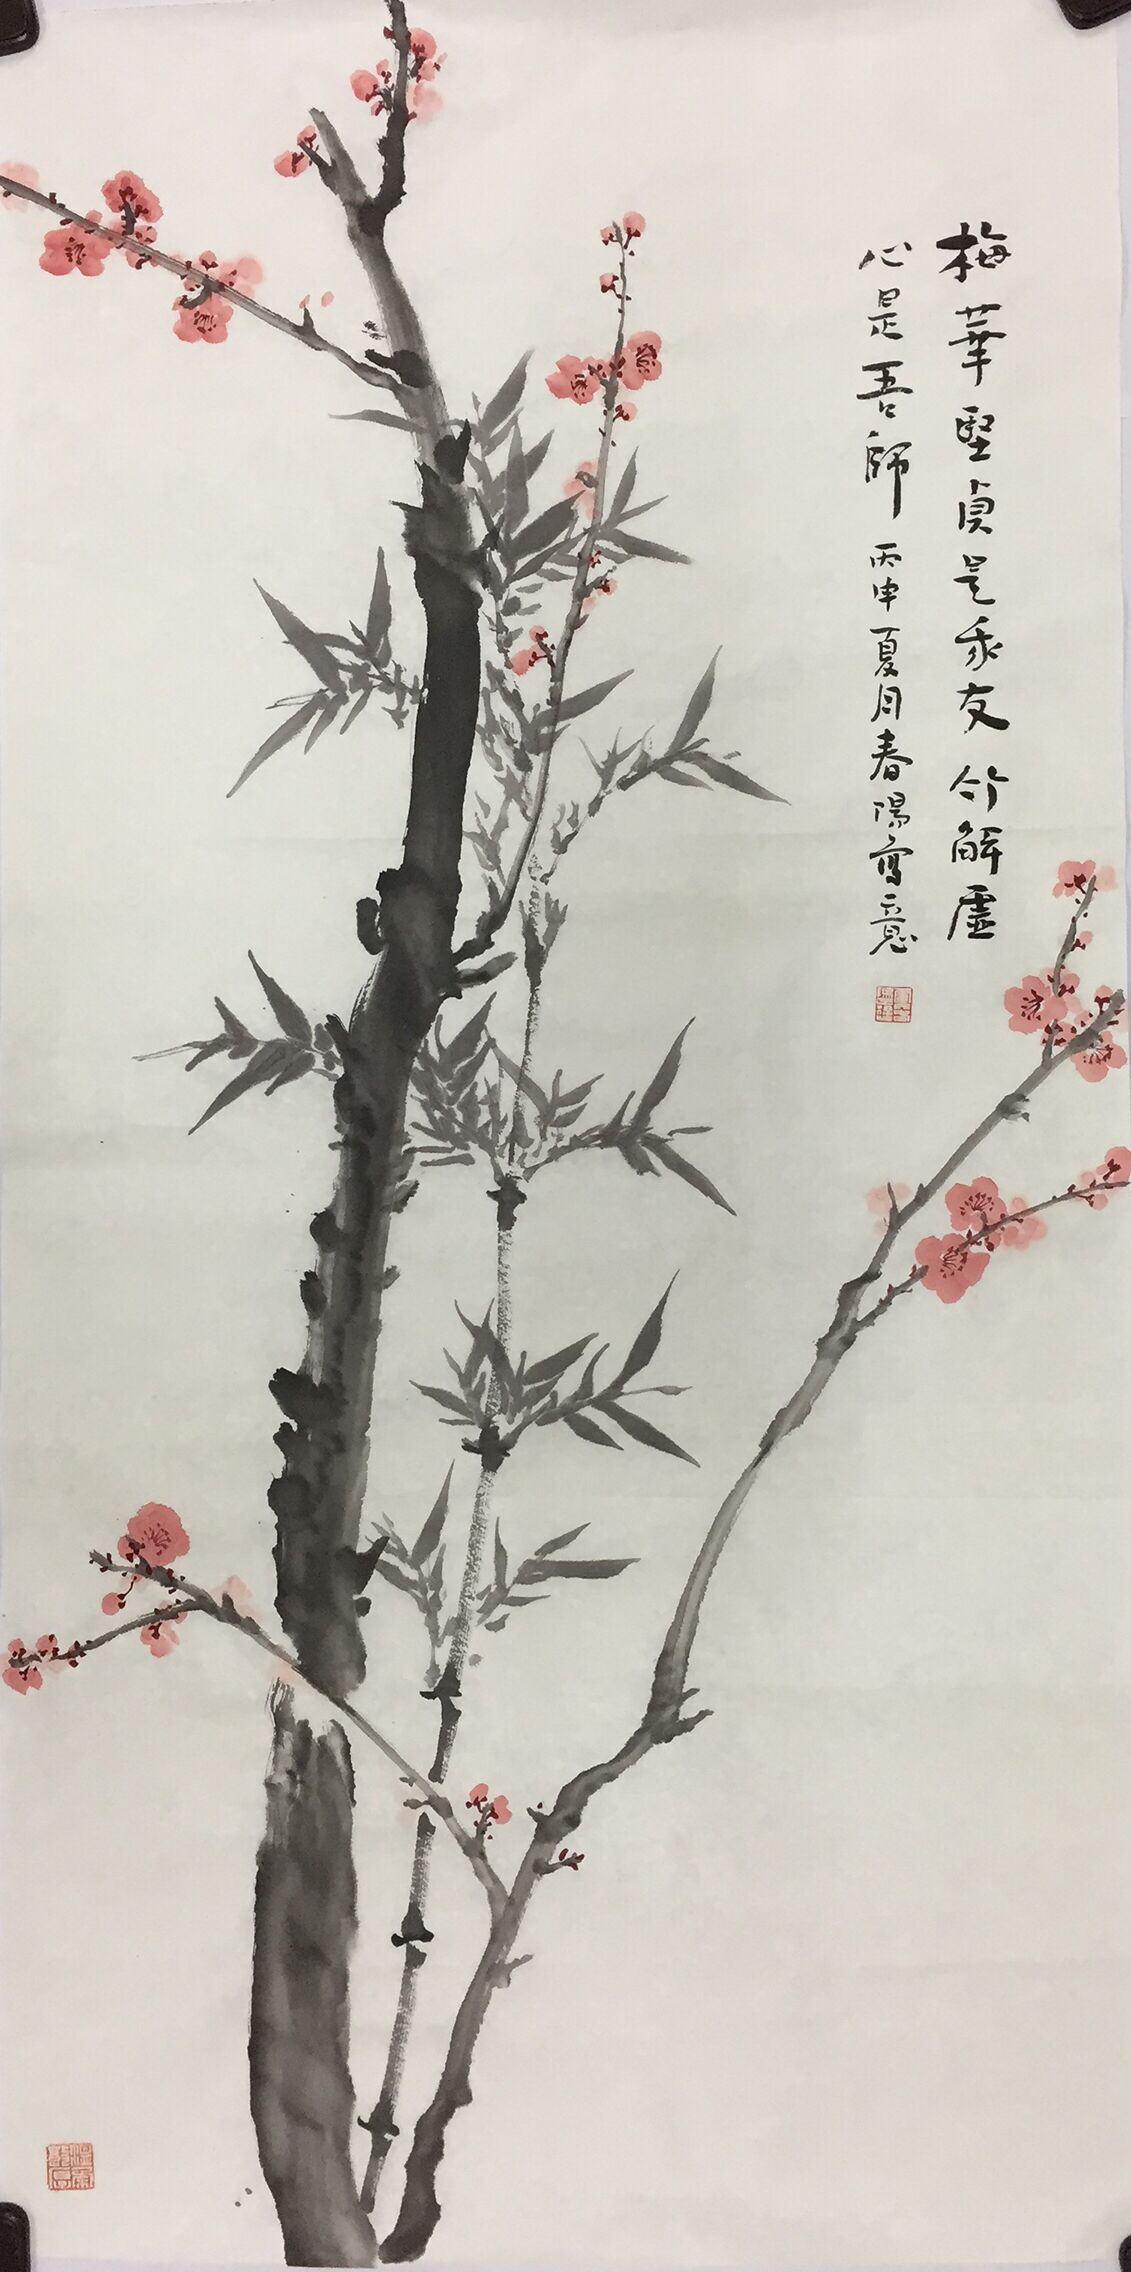 梅華堅貞是我友竹解虛
心是吾師丙申夏月春陽寫意